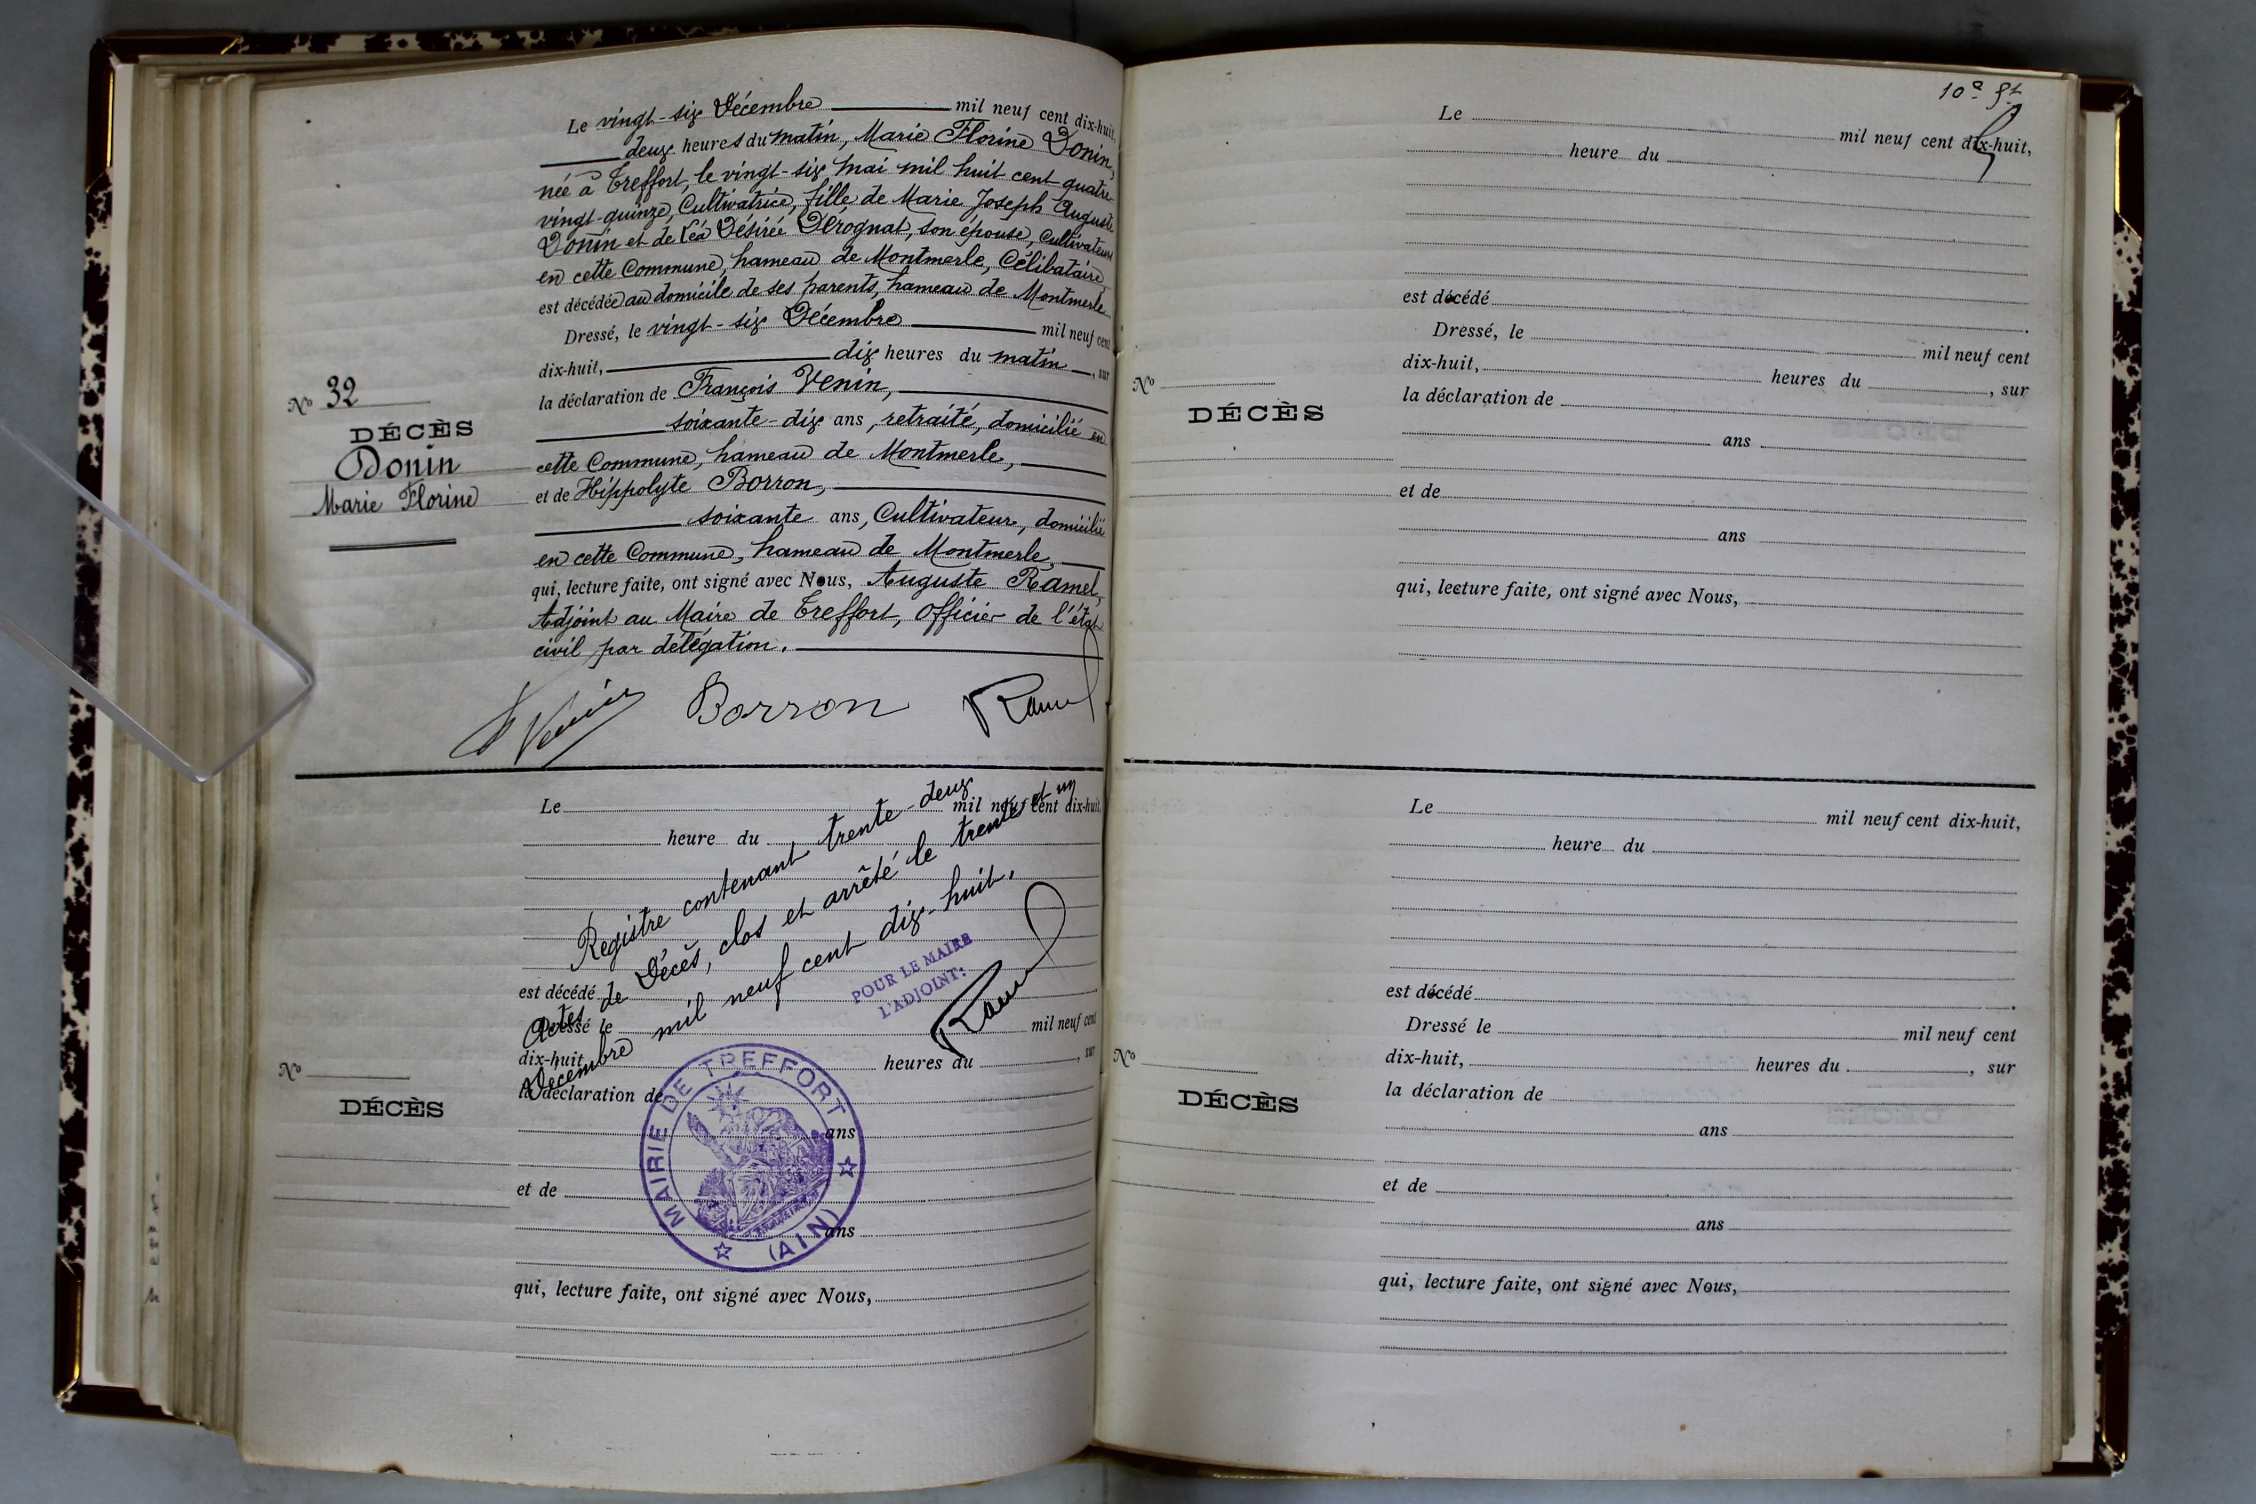 Le vingt-six Décembre mil neuf cent dix-huit,
deux heures du matin, Marie Florine Donin,
née à Treffort, le vingt-six mai mil huit cent quatre
vingt-quinze, Cultivatrice, fille de Marie Joseph Auguste
Donin et de Léa Désirée Dérognat, son épouse, Cultivateurs
en cette Commune, hameau de Montmerle, Célibataire,
est décédée au domicile de ses parents, hameau de Montmerle
Dressé, le vingt-six Décembre mil neuf cent
dix-huit, dix heures du matin, sur
la déclaration de François Venin,
soixante-dix ans, retraité, domicilié en
cette Commune, hameau de Montmerle,
et de Hippolyte Borron,
soixante ans, Cultivateur, domicilié
en cette Commune, hameau de Montmerle,
qui, lecture faite, ont signé avec Nous, Auguste Ramel,
Adjoint au Maire de Treffort, officier de l'état
civil par délégation.
Nº 32
DÉCÈS
Donin
Marie Florine
Venin Borron Ramel
Le mil neuf cent dix-huit,
heure du
est décédé
Dressé le mil neuf cent
dix-huit, heures du , sur
la déclaration de
ans
et de
ans
qui, lecture faite, ont signé avec Nous,
Nº
DÉCÈS
Registre contenant trente-deux
actes de Décès, clos et arrêté le trente et un
Décembre mil neuf cent dix-huit.
POUR LE MAIRE
L'ADJOINT:
Ramel
MAIRIE DE TREFFORT
(AIN)
10e
Le mil neuf cent dix-huit,
heure du
est décédé
Dressé, le mil neuf cent
dix-huit, heures du , sur
la déclaration de
ans
et de
ans
qui, lecture faite, ont signé avec Nous,
Nº
DÉCÈS
Le mil neuf cent dix-huit,
heure du
est décédé
Dressé le mil neuf cent
dix-huit, heures du , sur
la déclaration de
ans
et de
ans
qui, lecture faite, ont signé avec Nous,
Nº
DÉCÈS